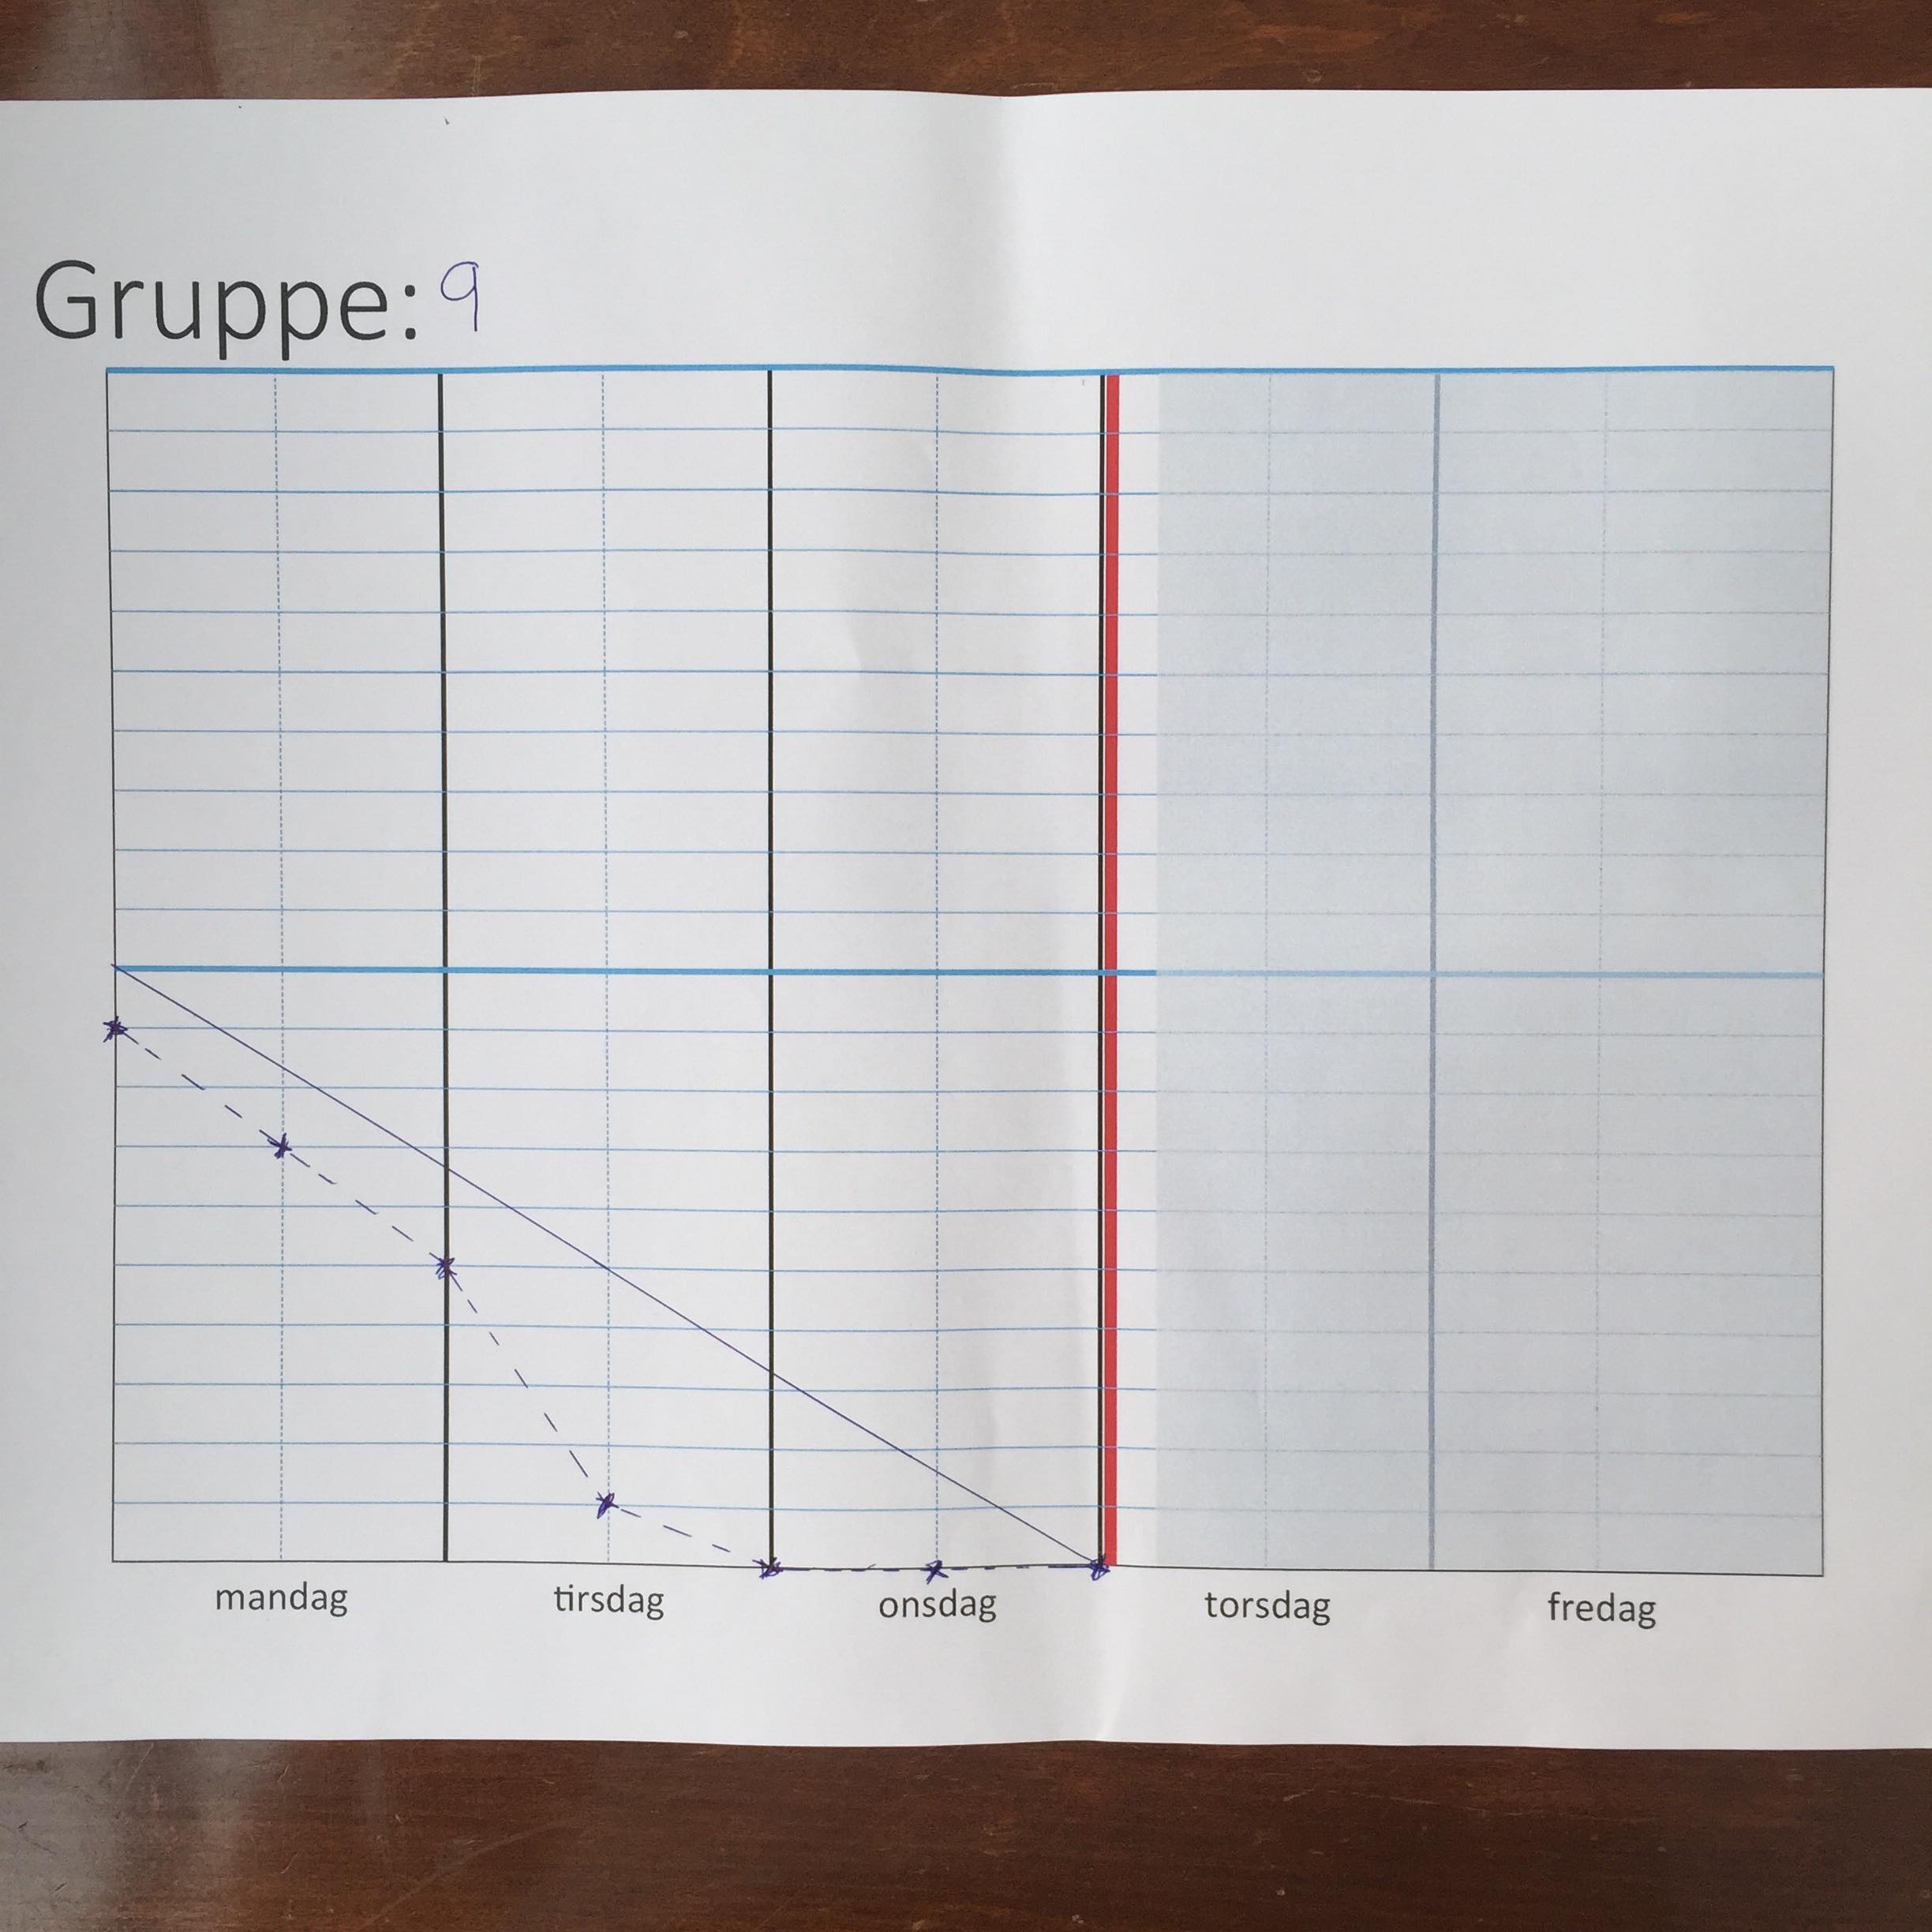 Gruppe: 9
mandag tirsdag onsdag torsdag fredag